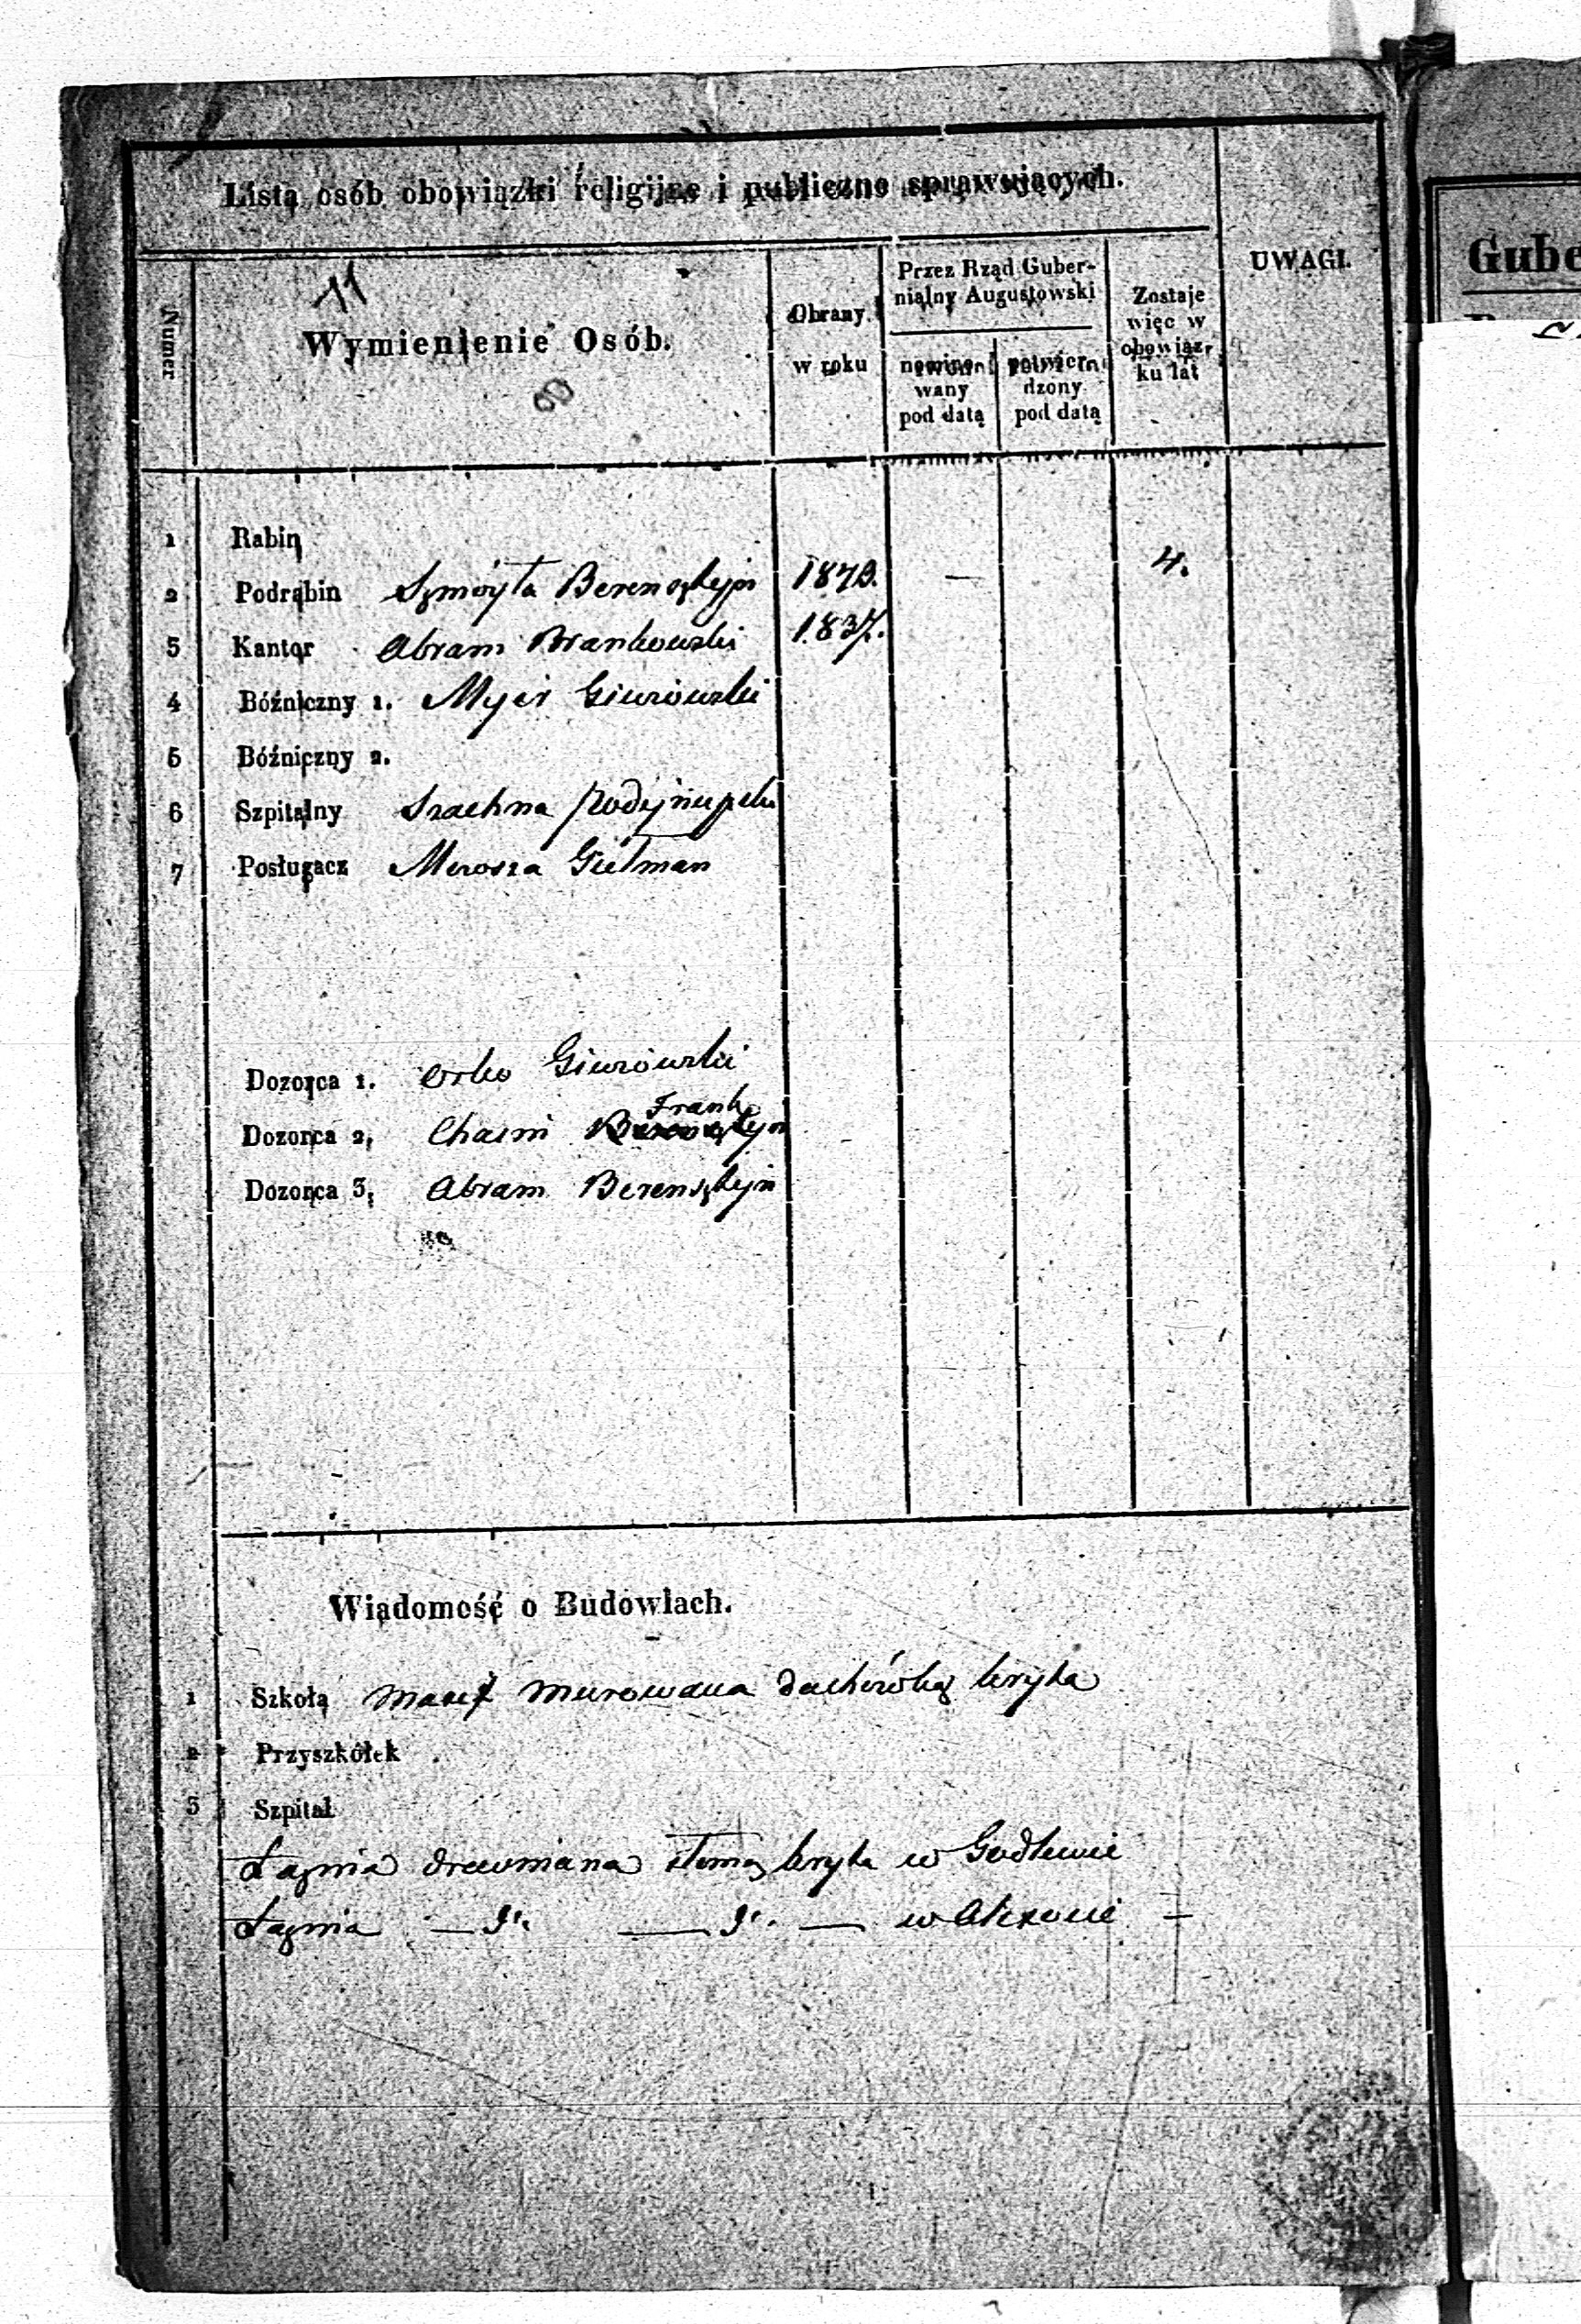 Lista osób obowiązki religijne i publiczne sprawujących.
UWAGI.
Numer
11
Wymienienie Osób.
Obrany w roku
Przez Rząd Guber-
nialny Augustowski
nomino-
wany
pod datą
potwier-
dzony
pod datą
Zostaje
więc w
obowiąz-
ku lat
1 Rabin
2 Podrabin Szmoyła Berensztejn 1843. — 4.
3 Kantor Abram Brankowski 1837.
4 Bóźniczny 1. Myer Giwrowski
5 Bóźniczny 2.
6 Szpitalny Szachna
7 Posługacz Gielman
Dozorca 1. Orko Giwrowski
Frank
Dozorca 2. Chaim
Dozorca 3. Abram Berensztejn
Wiadomość o Budowlach.
1 Szkoła murowana dachówką kryta
2 Przyszkółek
3 Szpital
Łaznia drewniana słomą kryta w Godlewie
Łaznia — d°. — d°. — w Alexocie
Gube